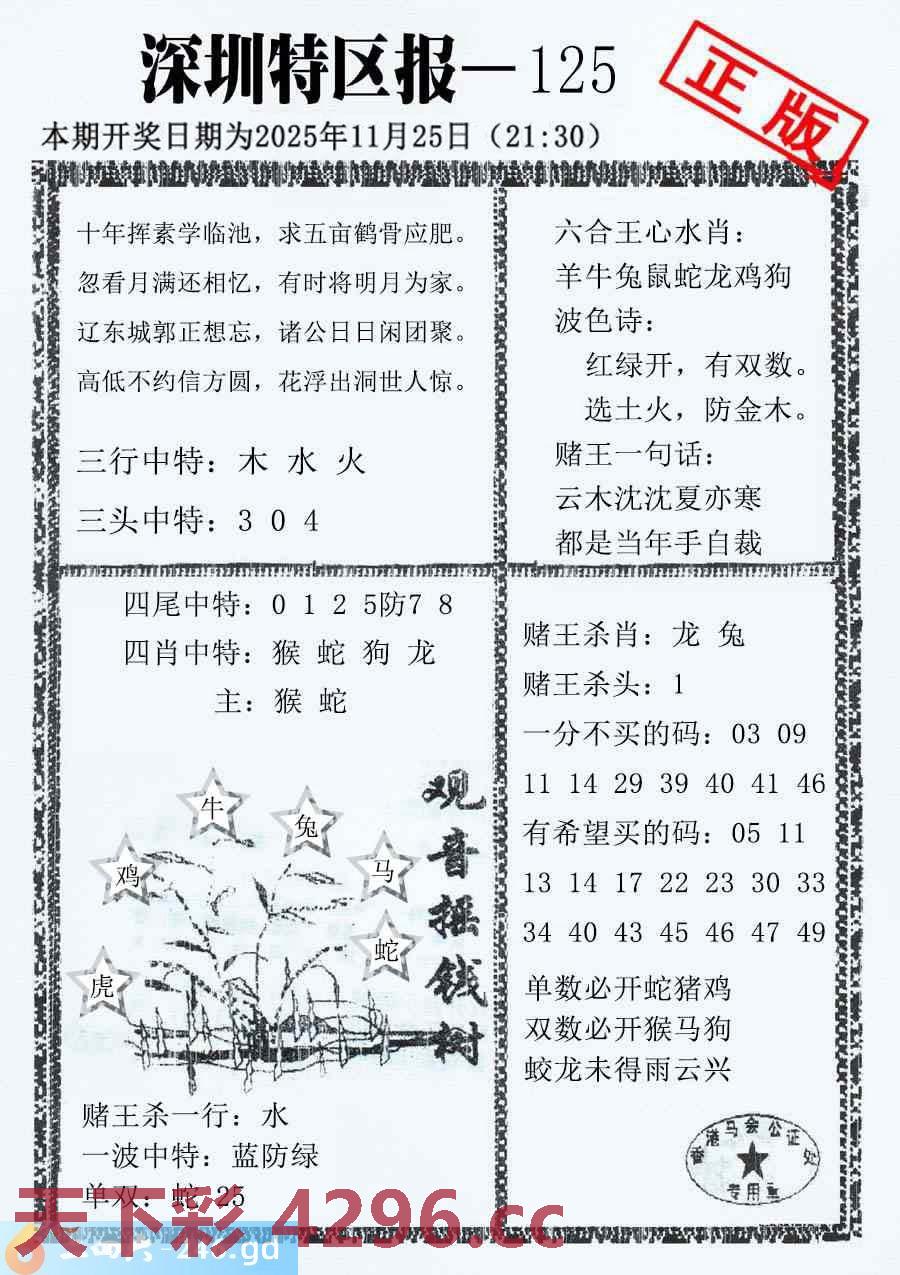 深圳特区报—125
正版
本期开奖日期为2025年11月25日（21:30）
十年挥素学临池，求五亩鹤骨应肥。
忽看月满还相忆，有时将明月为家。
辽东城郭正想忘，诸公日日闲团聚。
高低不约信方圆，花浮出洞世人惊。
三行中特：木 水 火
三头中特：3 0 4
六合王心水肖：
羊牛兔鼠蛇龙鸡狗
波色诗：
红绿开，有双数。
选土火，防金木。
赌王一句话：
云木沈沈夏亦寒
都是当年手自裁
四尾中特：0 1 2 5防7 8
四肖中特：猴 蛇 狗 龙
主：猴 蛇
牛
兔
鸡
马
蛇
虎
观音摇钱树
赌王杀一行：水
一波中特：蓝防绿
单双：蛇 25
赌王杀肖：龙 兔
赌王杀头：1
一分不买的码：03 09
11 14 29 39 40 41 46
有希望买的码：05 11
13 14 17 22 23 30 33
34 40 43 45 46 47 49
单数必开蛇猪鸡
双数必开猴马狗
蛟龙未得雨云兴
香港马会公证处
专用章
天下彩 4296.cc
246.gd